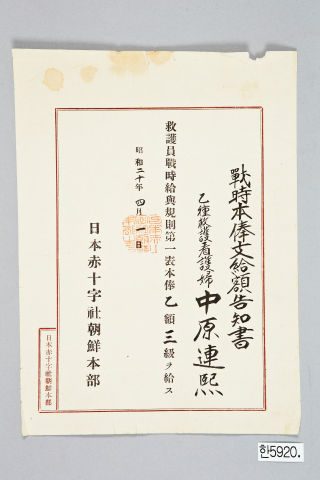 戰時本俸支給額告知書
乙種救護看護婦 中原連熙
救護員戰時給與規則第一表本俸乙額三級ヲ給ス
昭和二十年四月一日
日本赤十字社朝鮮本部
日本赤十字社朝鮮本部
한5920.